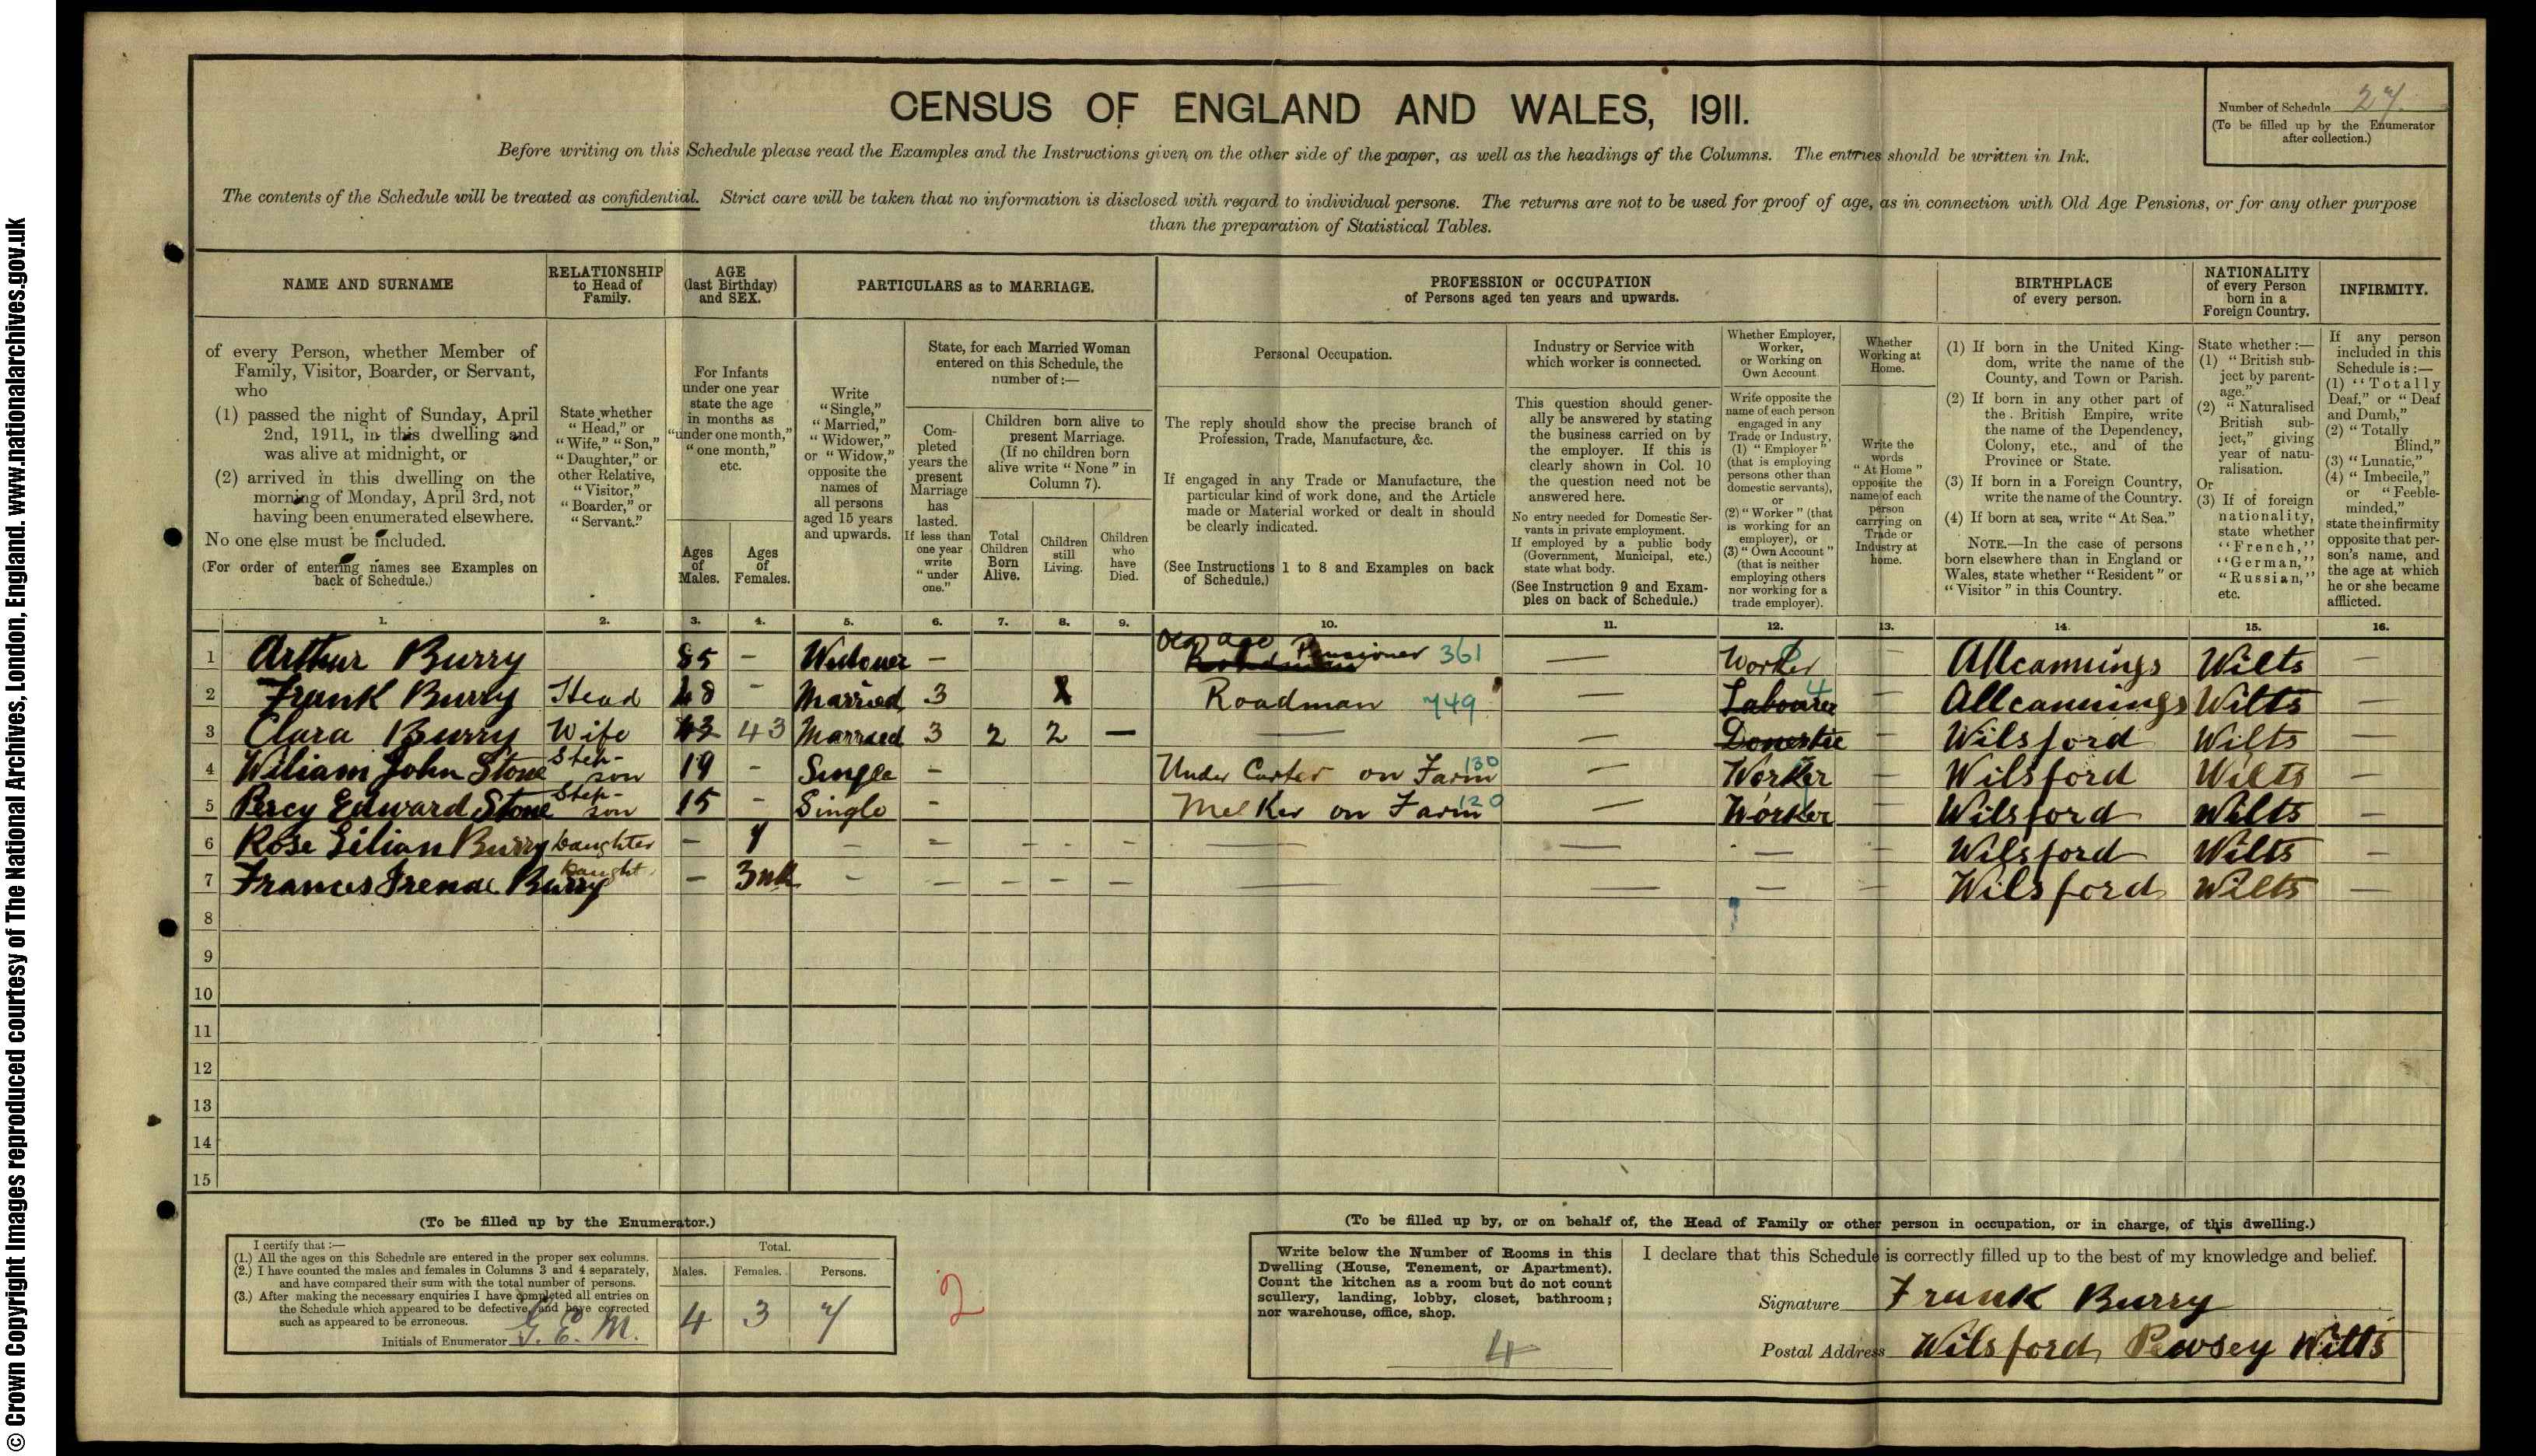 © Crown Copyright Images reproduced courtesy of The National Archives, London, England. www.nationalarchives.gov.uk
CENSUS OF ENGLAND AND WALES, 1911.
Number of Schedule 27
(To be filled up by the Enumerator
after collection.)
Before writing on this Schedule please read the Examples and the Instructions given on the other side of the paper, as well as the headings of the Columns. The entries should be written in Ink.
The contents of the Schedule will be treated as confidential. Strict care will be taken that no information is disclosed with regard to individual persons. The returns are not to be used for proof of age, as in connection with Old Age Pensions, or for any other purpose
than the preparation of Statistical Tables.
NAME AND SURNAME
of every Person, whether Member of
Family, Visitor, Boarder, or Servant,
who
(1) passed the night of Sunday, April
2nd, 1911, in this dwelling and
was alive at midnight, or
(2) arrived in this dwelling on the
morning of Monday, April 3rd, not
having been enumerated elsewhere.
No one else must be included.
(For order of entering names see Examples on
back of Schedule.)
RELATIONSHIP
to Head of
Family.
State whether
"Head," or
"Wife," "Son,"
"Daughter," or
other Relative,
"Visitor,"
"Boarder," or
"Servant."
AGE
(last Birthday)
and SEX.
For Infants
under one year
state the age
in months as
"under one month,"
"one month,"
etc.
Ages
of
Males.
Ages
of
Females.
PARTICULARS as to MARRIAGE.
Write
"Single,"
"Married,"
"Widower,"
or "Widow,"
opposite the
names of
all persons
aged 15 years
and upwards.
State, for each Married Woman
entered on this Schedule, the
number of:—
Com-
pleted
years the
present
Marriage
has
lasted.
If less than
one year
write
"under
one."
Children born alive to
present Marriage.
(If no children born
alive write "None" in
Column 7).
Total
Children
Born
Alive.
Children
still
Living.
Children
who
have
Died.
PROFESSION or OCCUPATION
of Persons aged ten years and upwards.
Personal Occupation.
The reply should show the precise branch of
Profession, Trade, Manufacture, &c.
If engaged in any Trade or Manufacture, the
particular kind of work done, and the Article
made or Material worked or dealt in should
be clearly indicated.
(See Instructions 1 to 8 and Examples on back
of Schedule.)
Industry or Service with
which worker is connected.
This question should gener-
ally be answered by stating
the business carried on by
the employer. If this is
clearly shown in Col. 10
the question need not be
answered here.
No entry needed for Domestic Ser-
vants in private employment.
If employed by a public body
(Government, Municipal, etc.)
state what body.
(See Instruction 9 and Exam-
ples on back of Schedule.)
Whether Employer,
Worker,
or Working on
Own Account
Write opposite the
name of each person
engaged in any
Trade or Industry,
(1) "Employer"
(that is employing
persons other than
domestic servants),
or
(2) "Worker" (that
is working for an
employer), or
(3) "Own Account"
(that is neither
employing others
nor working for a
trade employer).
Whether
Working at
Home.
Write the
words
"At Home"
opposite the
name of each
person
carrying on
Trade or
Industry at
home.
BIRTHPLACE
of every person.
(1) If born in the United King-
dom, write the name of the
County, and Town or Parish.
(2) If born in any other part of
the British Empire, write
the name of the Dependency,
Colony, etc., and of the
Province or State.
(3) If born in a Foreign Country,
write the name of the Country.
(4) If born at sea, write "At Sea."
NOTE.—In the case of persons
born elsewhere than in England or
Wales, state whether "Resident" or
"Visitor" in this Country.
NATIONALITY
of every Person
born in a
Foreign Country.
State whether:—
(1) "British sub-
ject by parent-
age."
(2) "Naturalised
British sub-
ject," giving
year of natu-
ralisation.
Or
(3) If of foreign
nationality,
state whether
"French,"
"German,"
"Russian,"
etc.
INFIRMITY.
If any person
included in this
Schedule is:—
(1) "Totally
Deaf," or "Deaf
and Dumb,"
(2) "Totally
Blind,"
(3) "Lunatic,"
(4) "Imbecile,"
or "Feeble-
minded,"
state the infirmity
opposite that per-
son's name, and
the age at which
he or she became
afflicted.
1. 2. 3. 4. 5. 6. 7. 8. 9. 10. 11. 12. 13. 14. 15. 16.
1 Arthur Burry 85 – Widower – Old age Pensioner 361 — Worker — Allcannings Wilts —
2 Frank Burry Head 48 – Married 3 Roadman 749 — Labourer — Allcannings Wilts —
3 Clara Burry Wife 43 43 Married 3 2 2 — — — Domestic — Wilsford Wilts —
4 Wiliam John Stone Step-son 19 – Single – Under Carter on Farm 130 — Worker — Wilsford Wilts —
5 Percy Edward Stone Step-son 15 – Single – Melker on Farm 120 — Worker Wilsford Wilts —
6 Rose Lilian Burry Daughter – 1 – – – – – — — — — Wilsford Wilts —
7 Frances Irenae Burry Daught – 3 – – – – – — — — — Wilsford Wilts —
8
9
10
11
12
13
14
15
(To be filled up by the Enumerator.)
I certify that:—
(1.) All the ages on this Schedule are entered in the proper sex columns.
(2.) I have counted the males and females in Columns 3 and 4 separately,
and have compared their sum with the total number of persons.
(3.) After making the necessary enquiries I have completed all entries on
the Schedule which appeared to be defective, and have corrected
such as appeared to be erroneous.
Initials of Enumerator G. E. M.
Total.
Males. Females. Persons.
4 3 7
2
(To be filled up by, or on behalf of, the Head of Family or other person in occupation, or in charge, of this dwelling.)
Write below the Number of Rooms in this
Dwelling (House, Tenement, or Apartment).
Count the kitchen as a room but do not count
scullery, landing, lobby, closet, bathroom;
nor warehouse, office, shop.
4
I declare that this Schedule is correctly filled up to the best of my knowledge and belief.
Signature Frank Burry
Postal Address Wilsford Pewsey Wilts